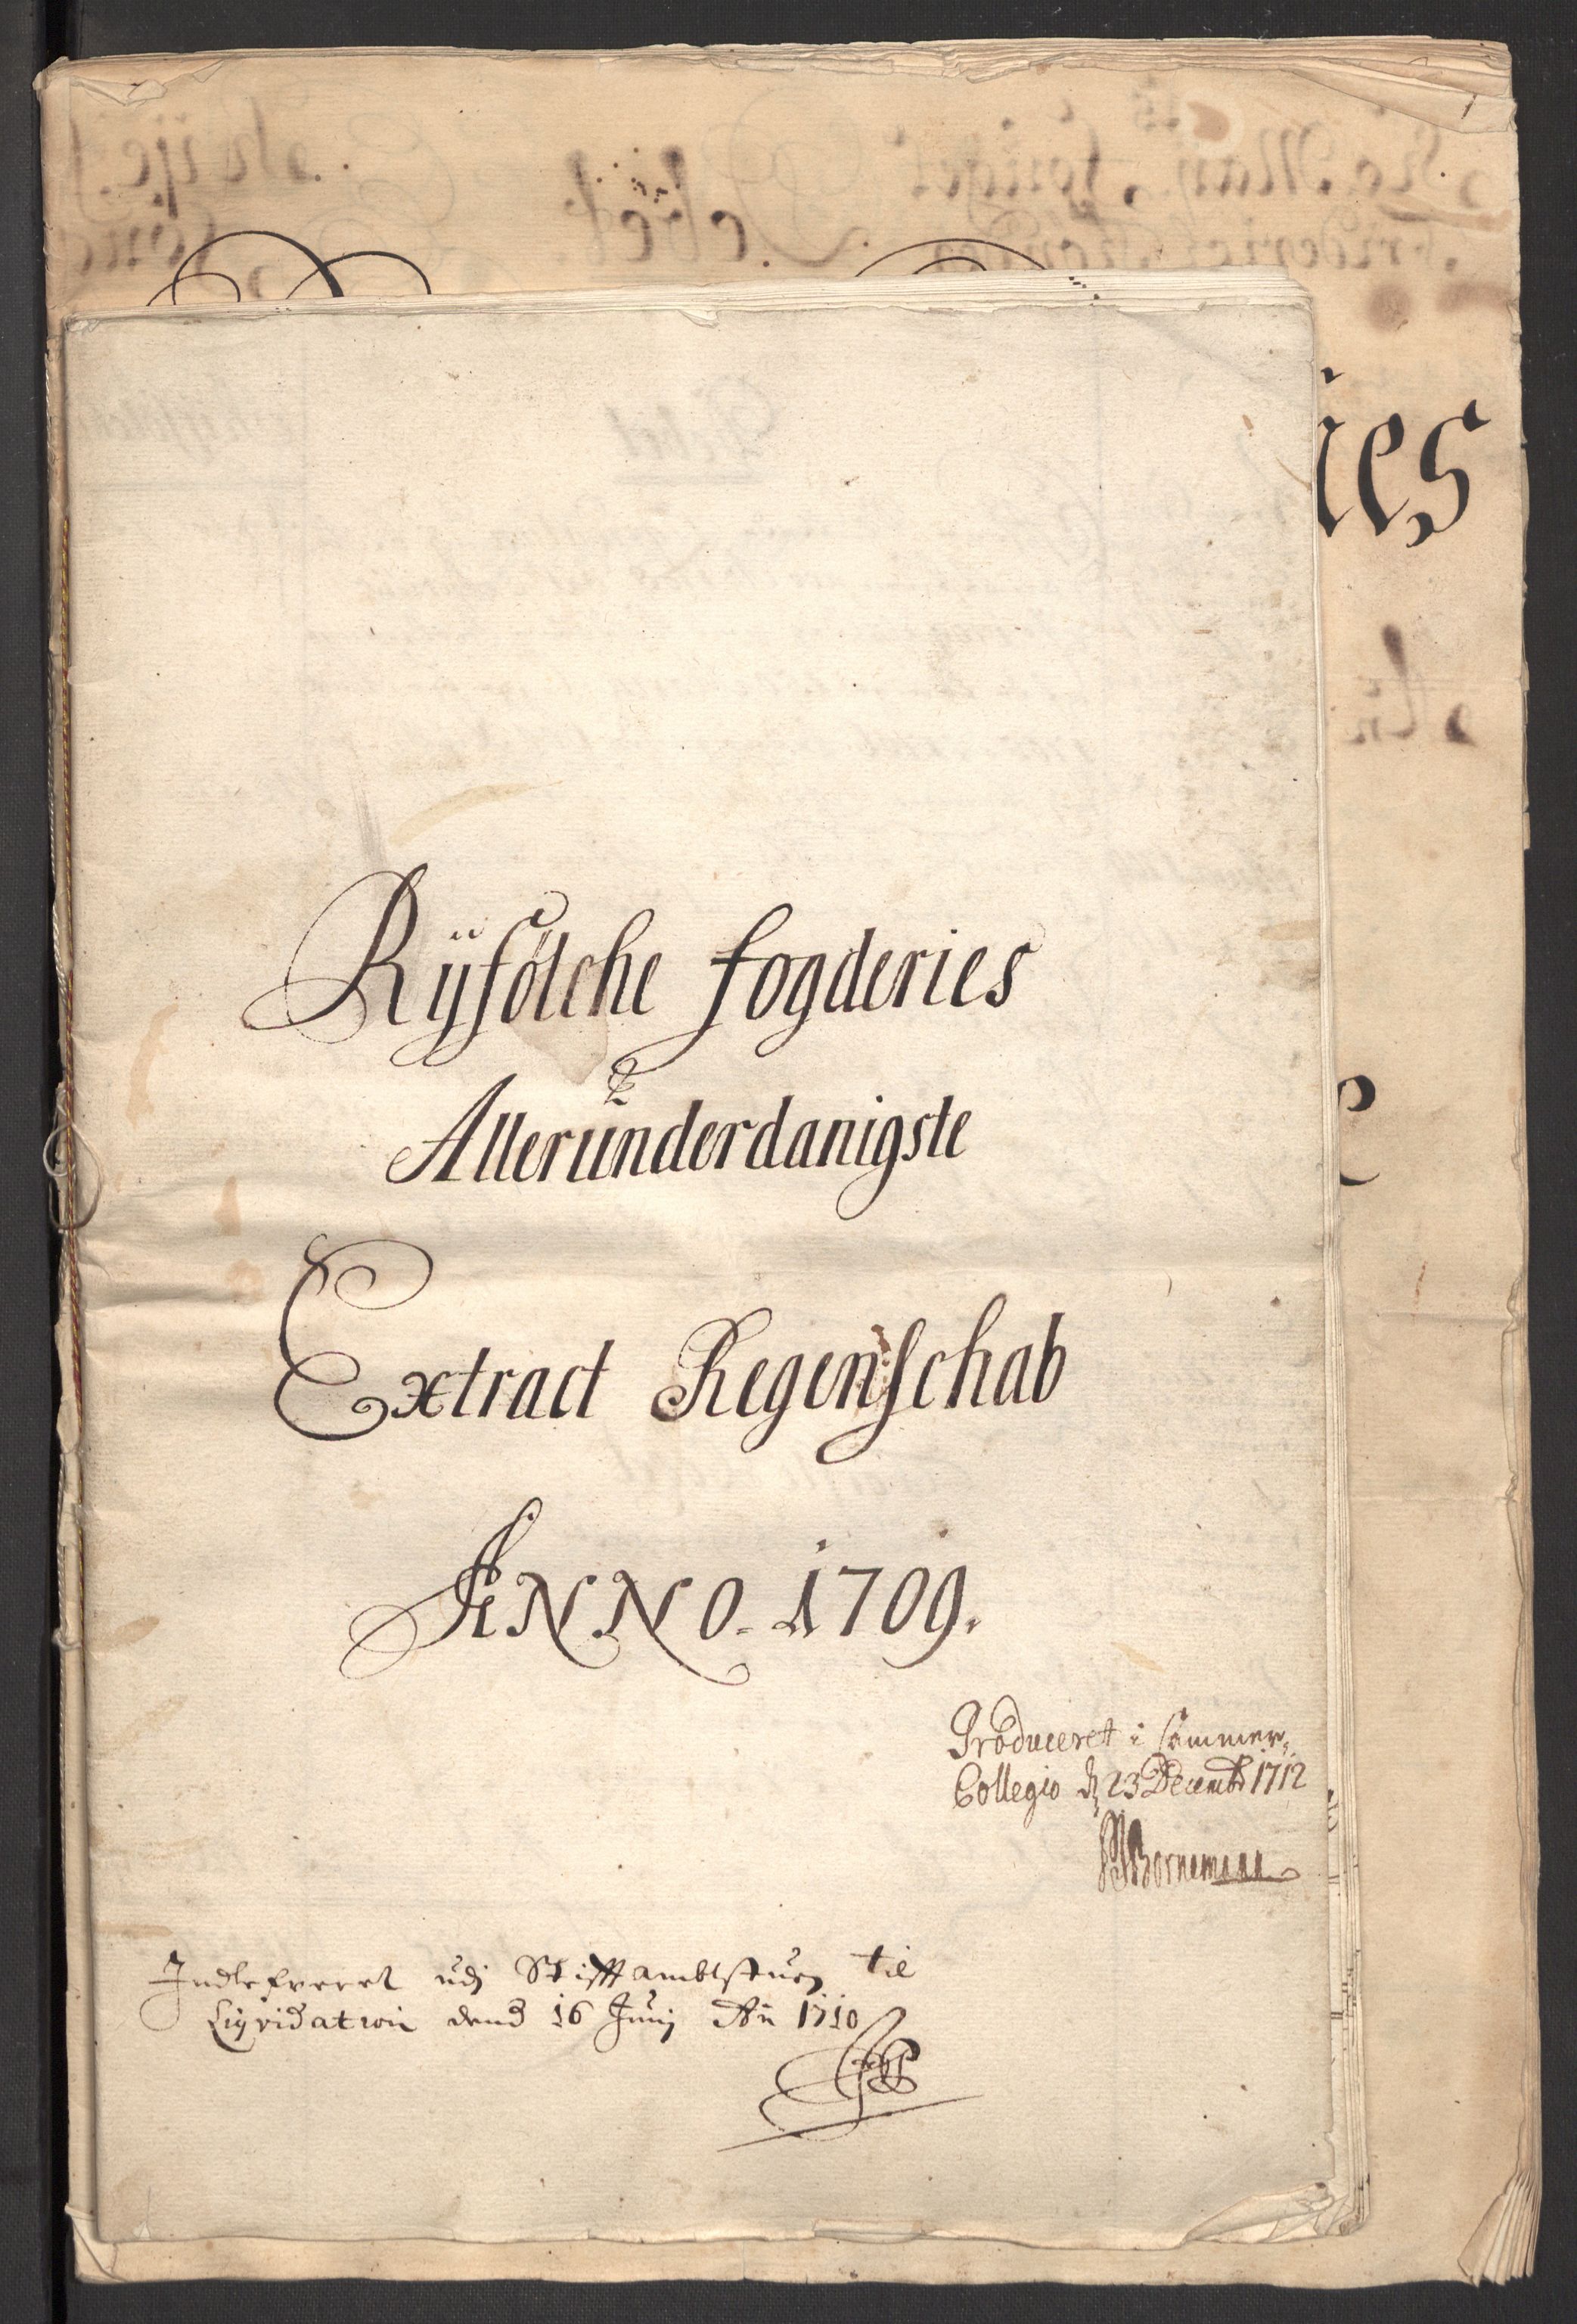 ies
e
Rÿfölche fogderies
Alleründerdanigste
Extract Regenschab
ANNO. 1709.
Produceret i Cammer,
Collegio d 23 Decemb 1712
Bornemann
Indlefveret udj Stifftambtstuen til
Liqvidation dend 16 Junij An 1710